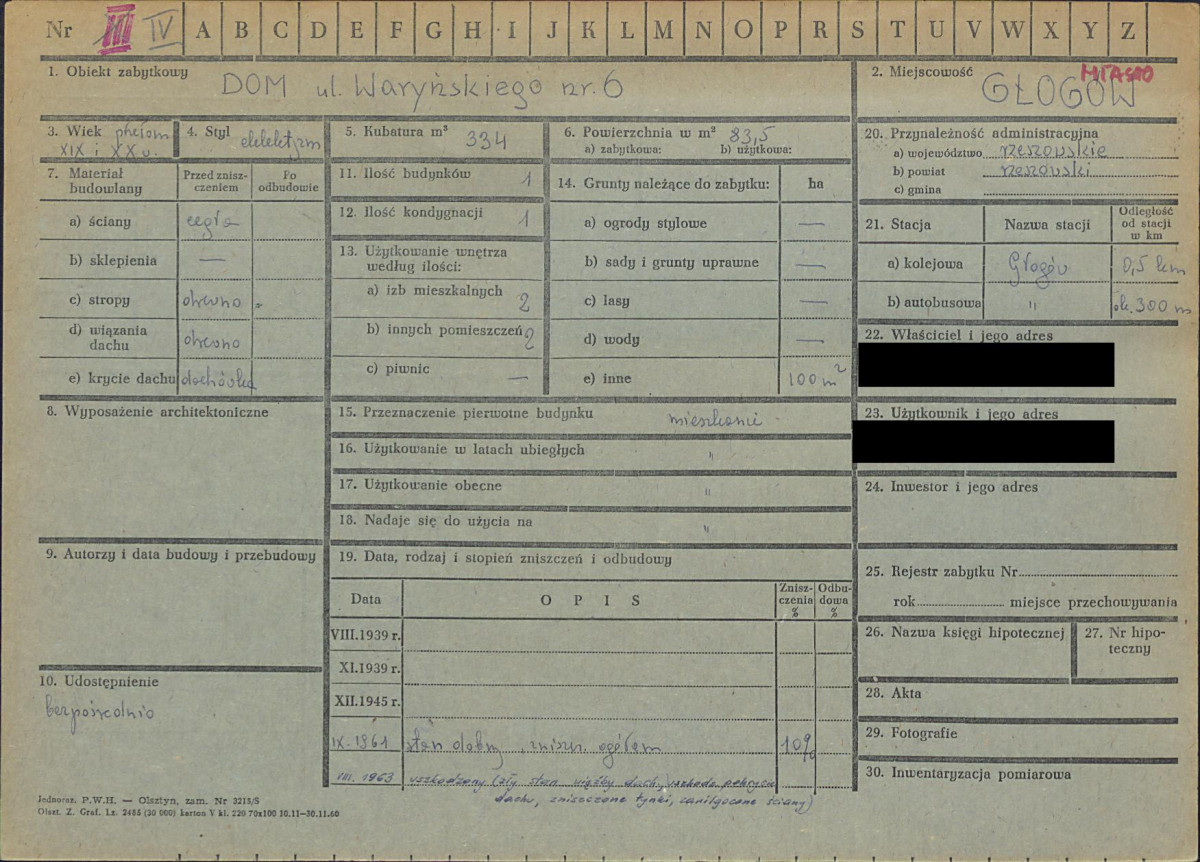 Nr III IV A B C D E F G H I J K L M N O P R S T U V W X Y Z
1. Obiekt zabytkowy
DOM ul. Waryńskiego nr. 6
2. Miejscowość
MIASTO
GŁOGÓW
3. Wiek przełom
XIX i XX w.
4. Styl eklektyzm
5. Kubatura m³ 334
6. Powierzchnia w m² 83,5
a) zabytkowa: b) użytkowa:
7. Materiał budowlany
Przed zniszczeniem
Po odbudowie
a) ściany cegła
b) sklepienia —
c) stropy drewno
d) wiązania dachu drewno
e) krycie dachu dachówka
8. Wyposażenie architektoniczne
9. Autorzy i data budowy i przebudowy
10. Udostępnienie
bezpośrednio
11. Ilość budynków 1
12. Ilość kondygnacji 1
13. Użytkowanie wnętrza
według ilości:
a) izb mieszkalnych 2
b) innych pomieszczeń 2
c) piwnic —
14. Grunty należące do zabytku: ha
a) ogrody stylowe —
b) sady i grunty uprawne —
c) lasy —
d) wody —
e) inne 100 m²
15. Przeznaczenie pierwotne budynku mieszkanie
16. Użytkowanie w latach ubiegłych "
17. Użytkowanie obecne "
18. Nadaje się do użycia na "
19. Data, rodzaj i stopień zniszczeń i odbudowy
Data O P I S Zniszczenia % Odbudowa %
VIII.1939 r.
XI.1939 r.
XII.1945 r.
IX. 1961 stan dobry, zniszcz. ogółem 10%
VIII. 1963 uszkodzony (zły stan więźby dachu, pokrycia
dachu, zniszczone tynki, zawilgocone ściany)
20. Przynależność administracyjna
a) województwo rzeszowskie
b) powiat rzeszowski
c) gmina
21. Stacja Nazwa stacji Odległość od stacji w km
a) kolejowa Głogów 0,5 km
b) autobusowa " ok. 300 m
22. Właściciel i jego adres
23. Użytkownik i jego adres
24. Inwestor i jego adres
25. Rejestr zabytku Nr
rok miejsce przechowywania
26. Nazwa księgi hipotecznej
27. Nr hipoteczny
28. Akta
29. Fotografie
30. Inwentaryzacja pomiarowa
Jednoraz. P.W.H. — Olsztyn, zam. Nr 3215/S
Olszt. Z. Graf. Lz. 2455 (30 000) karton V kl. 220 70x100 10.11—30.11.60